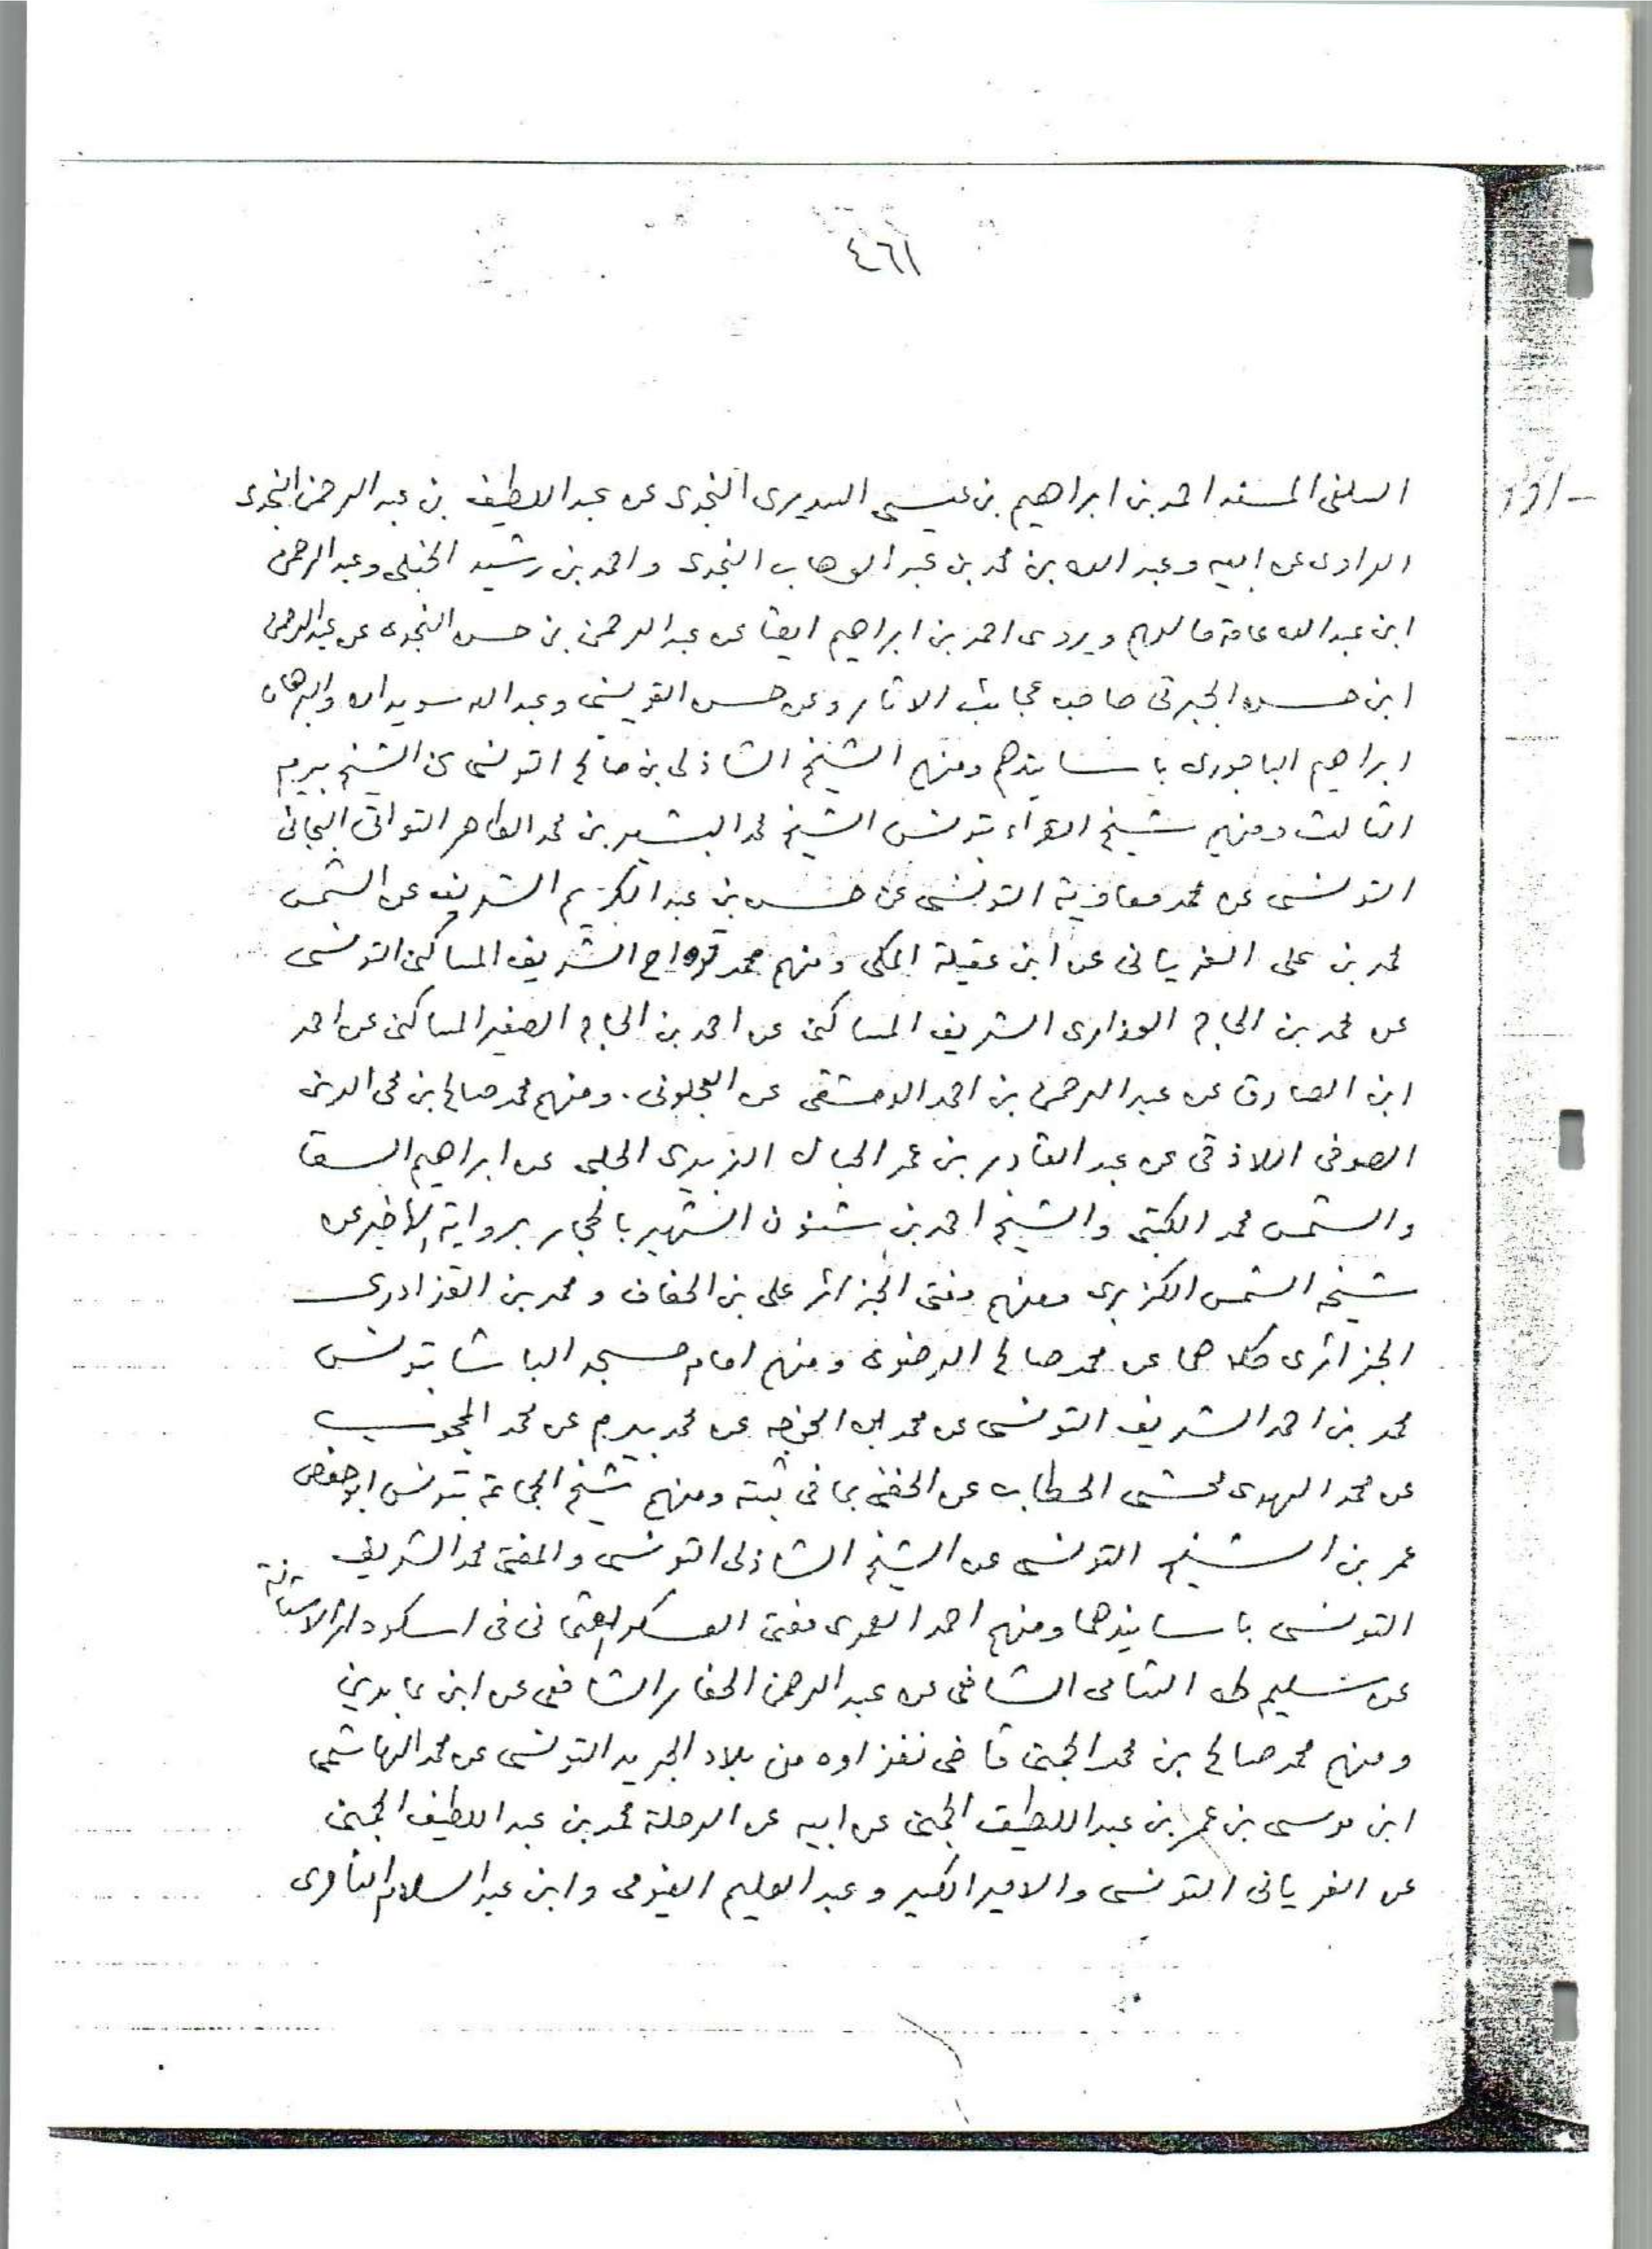 ٤٦١
السلفى المسند احمد بن ابراهيم بن عيسى السديرى النجدى عن عبد اللطيف بن عبد الرحمن النجدى
الراوى عن ابيه وعبد الله بن محمد بن عبد الوهاب النجدى واحمد بن رشيد الحنبلى وعبد الرحمن
ابن عبد الله عامة مالهم ويروى احمد بن ابراهيم ايضا عن عبد الرحمن بن حسن النجدى عن عبد الرحمن
ابن حسن الجبرتى صاحب عجائب الاثار وعن حسن القويسنى وعبد الله سويدان والبرهان
ابراهيم الباجورى باسانيدهم ومنهم الشيخ الشاذلى بن صالح التونسى عن الشيخ بيرم
الثالث ومنهم شيخ القراء بتونس الشيخ محمد البشير بن محمد الطاهر التواتى البجائى
التونسى عن محمد معاوية التونسى عن حسن بن عبد الكريم الشريف عن الشمس
محمد بن على الغريانى عن ابن عقيلة المكى ومنهم محمد قرواح الشريف المساكنى التونسى
عن محمد بن الحاج العذارى الشريف المساكنى عن احمد بن الحاج الصغير المساكنى عن احمد
ابن الصادق عن عبد الرحمن بن احمد الدمشقى عن العجلونى . ومنهم محمد صالح بن محى الدين
الصوفى اللاذقى عن عبد القادر بن عمر الحبال الزبيدى الحلبى عن ابراهيم السقا
والشمس محمد الكتبى والشيخ احمد بن شنون الشهير بالحجار برواية الاخير عن
شيخه الشمس الكزبرى ومنهم مفتى الجزائر على بن الحفاف ومحمد بن القزادرى
الجزائرى كلاهما عن محمد صالح الرضوى ومنهم امام مسجد الباشا بتونس
محمد بن احمد الشريف التونسى عن محمد ابن الخوجه عن محمد بيرم عن محمد المحجوب
عن محمد الهدى محشى الحطاب عن الحفنى بما فى ثبته ومنهم شيخ الجماعة بتونس ابو حفص
عمر بن الشيخ التونسى عن الشيخ الشاذلى التونسى والمفتى محمد الشريف
التونسى باسانيدهما ومنهم احمد العمرى مفتى العسكر العثمانى فى اسكودار الاستانة
عن سليم طه الشامى الشافعى عن عبد الرحمن الحفار الشافعى عن ابن عابدين
ومنهم محمد صالح بن محمد الجمنى قاضى نفزاوه من بلاد الجريد التونسى عن محمد الهاشمى
ابن موسى بن عمر بن عبد اللطيف الجمنى عن ابيه عن الرحلة محمد بن عبد اللطيف الجمنى
عن الغريانى التونسى والامير الكبير وعبد العليم الفيومى وابن عبد السلام الناصرى